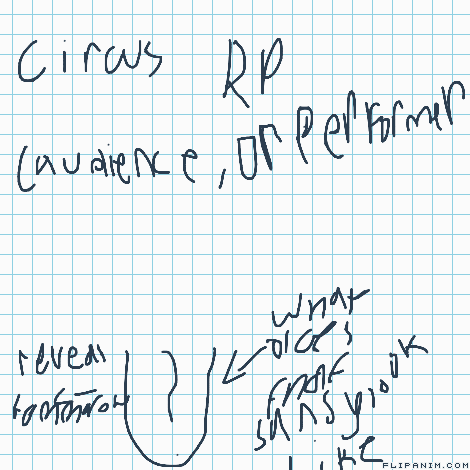 Circus RP
(audience, or performer
reveal
what
does
sans look
like
FLIPANIM.COM